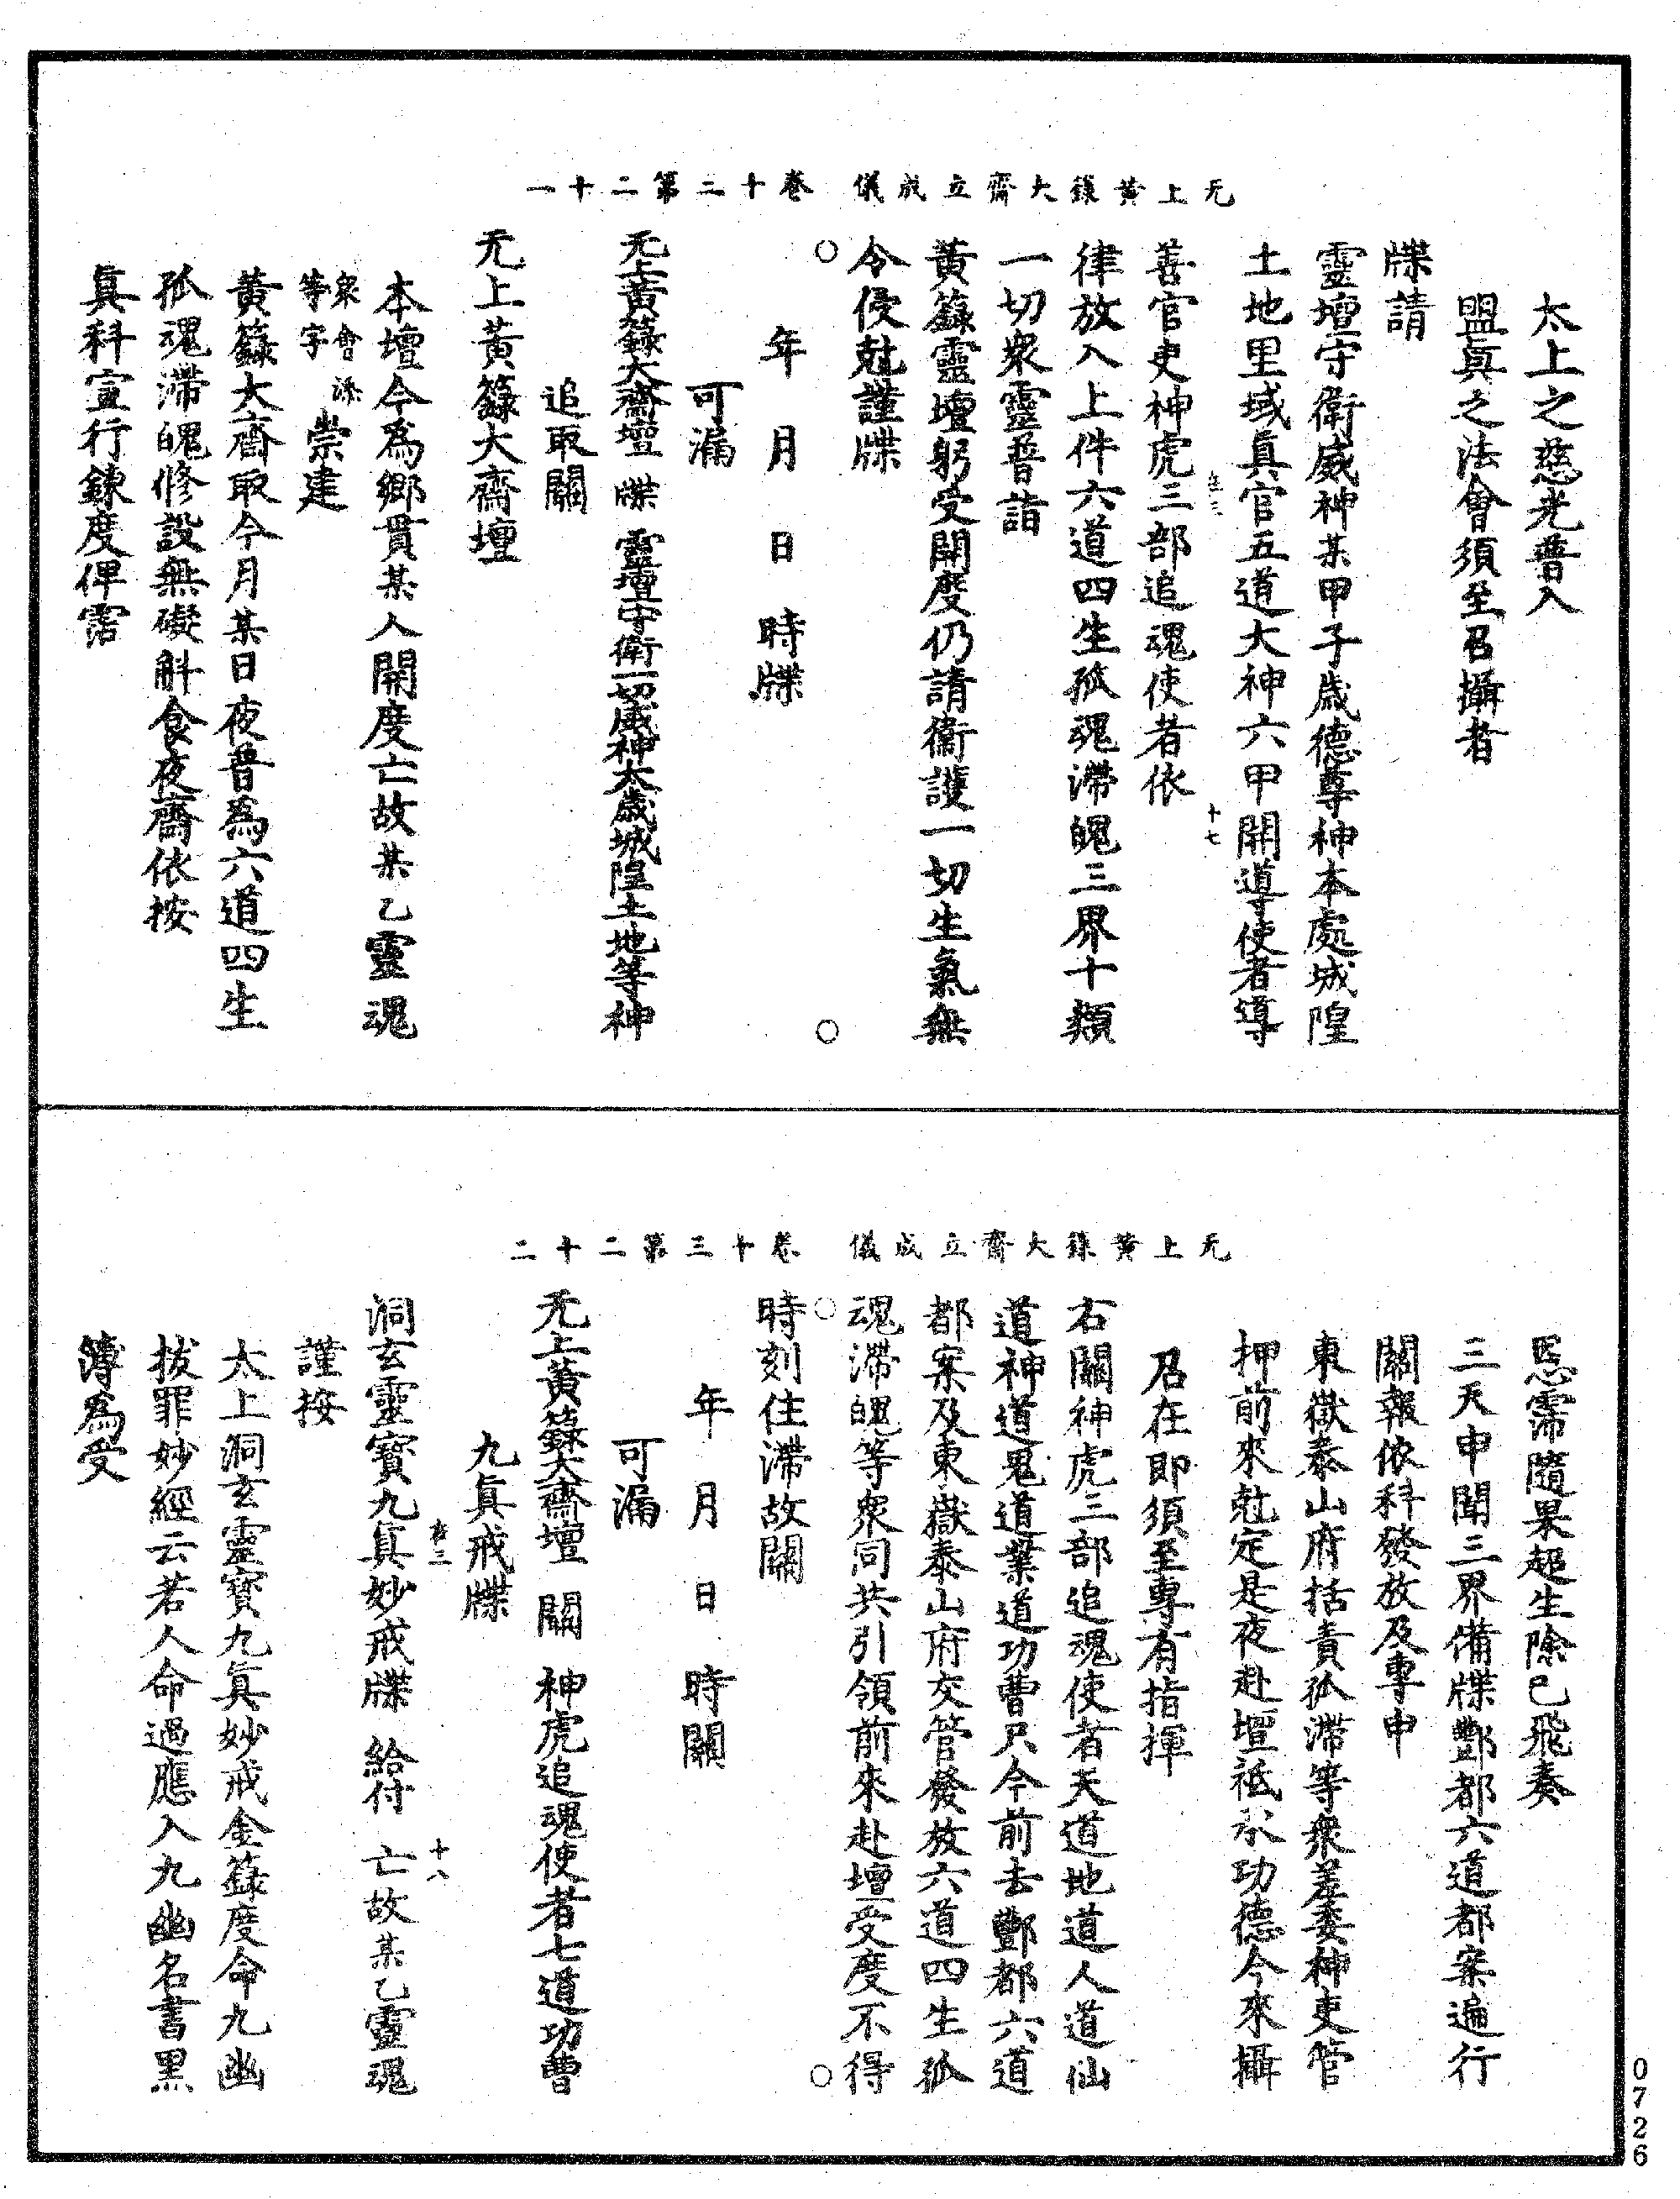 无上黃籙大齋立成儀　卷十三第二十一
太上之慈光普入
盟眞之法會須至召攝者
牒請
靈壇守衛威神某甲子歲德尊神本處城隍
土地里域眞官五道大神六甲開導使者導
善官吏神虎三部追魂使者依
十七
律放入上件六道四生孤魂滯魄三界十類
一切衆靈普詣
黃籙靈壇躬受開度仍請衞護一切生氣無
令侵尅謹牒
○　○
年　月　日　時牒
可漏
无上黃籙大齋壇　牒　靈壇守衛一切威神太歲城隍土地等神
追取關
无上黃籙大齋壇
本壇今爲鄉貫某人開度亡故某乙靈魂
衆會
等字　崇建
黃籙大齋取今月某日夜普爲六道四生
孤魂滯魄修設無礙斛食夜齋依按
眞科宣行鍊度俾霑
无上黃籙大齋立成儀　卷十三第二十二
恩霈隨果超生除已飛奏
三天申聞三界備牒酆都六道都案遍行
關報依科發放及專申
東嶽泰山府括責孤滯等衆差委神吏管
押前來尅定是夜赴壇祗承功德今來攝
召在卽須至專有指揮
右關神虎三部追魂使者天道地道人道仙
道神道鬼道業道功曹只今前去酆都六道
都案及東嶽泰山府交管發放六道四生孤
魂滯魄等衆同共引領前來赴壇受度不得
○　○
時刻住滯故關
年　月　日　時關
可漏
无上黃籙大齋壇　關　神虎追魂使者七道功曹
九眞戒牒
十八
洞玄靈寶九眞妙戒牒　給付　亡故某乙靈魂
謹按
太上洞玄靈寶九眞妙戒金籙度命九幽
拔罪妙經云若人命過應入九幽名書黑
簿爲受
0726